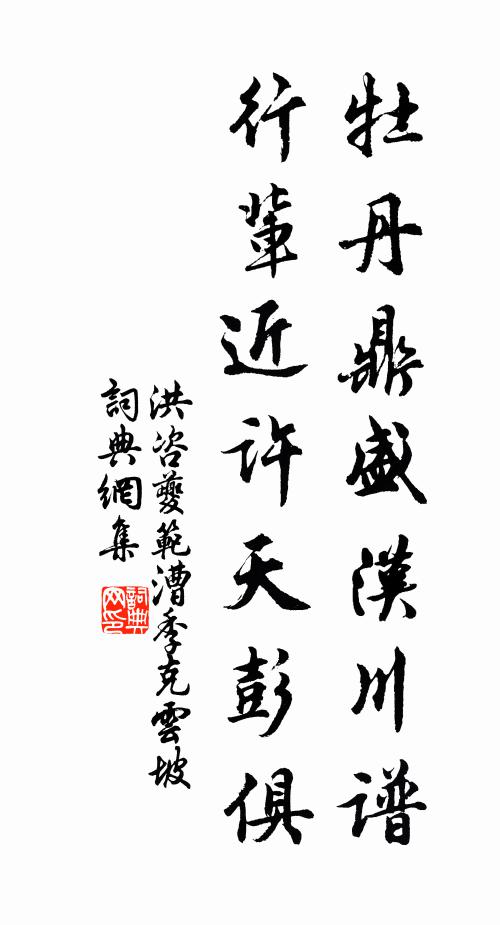 牡丹鼎盛漢川谱
行輩近許天彭俱
洪咨夔範漕季克雲坡
詞典網集
詞典网印